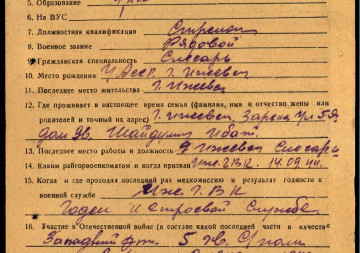 5. Образование
6. На ВУС
7. Должностная квалификация Стрелок
8. Военное звание Рядовой
9. Гражданская специальность Слесарь
10. Место рождения УАССР г. Ижевск
11. Последнее место жительства г. Ижевск
12. Где проживает в настоящее время семья (фамилия, имя и отчество жены или
родителей и точный на адрес) г. Ижевск, Зареч ул 5-я
дом 98.
13. Последнее место работы и должность г Ижевск Слесарь
14. Каким райгорвоенкоматом и когда призван Иж. Г.В.К. 14.09.44.
15. Когда и где проходил последний раз медкомиссию и результат годности к
военной службе Иж. Г.В.К
Годен к строевой службе
16. Участие в Отечественной войне (в составе какой последней части в качестве
Западный фт. 5 С/полк